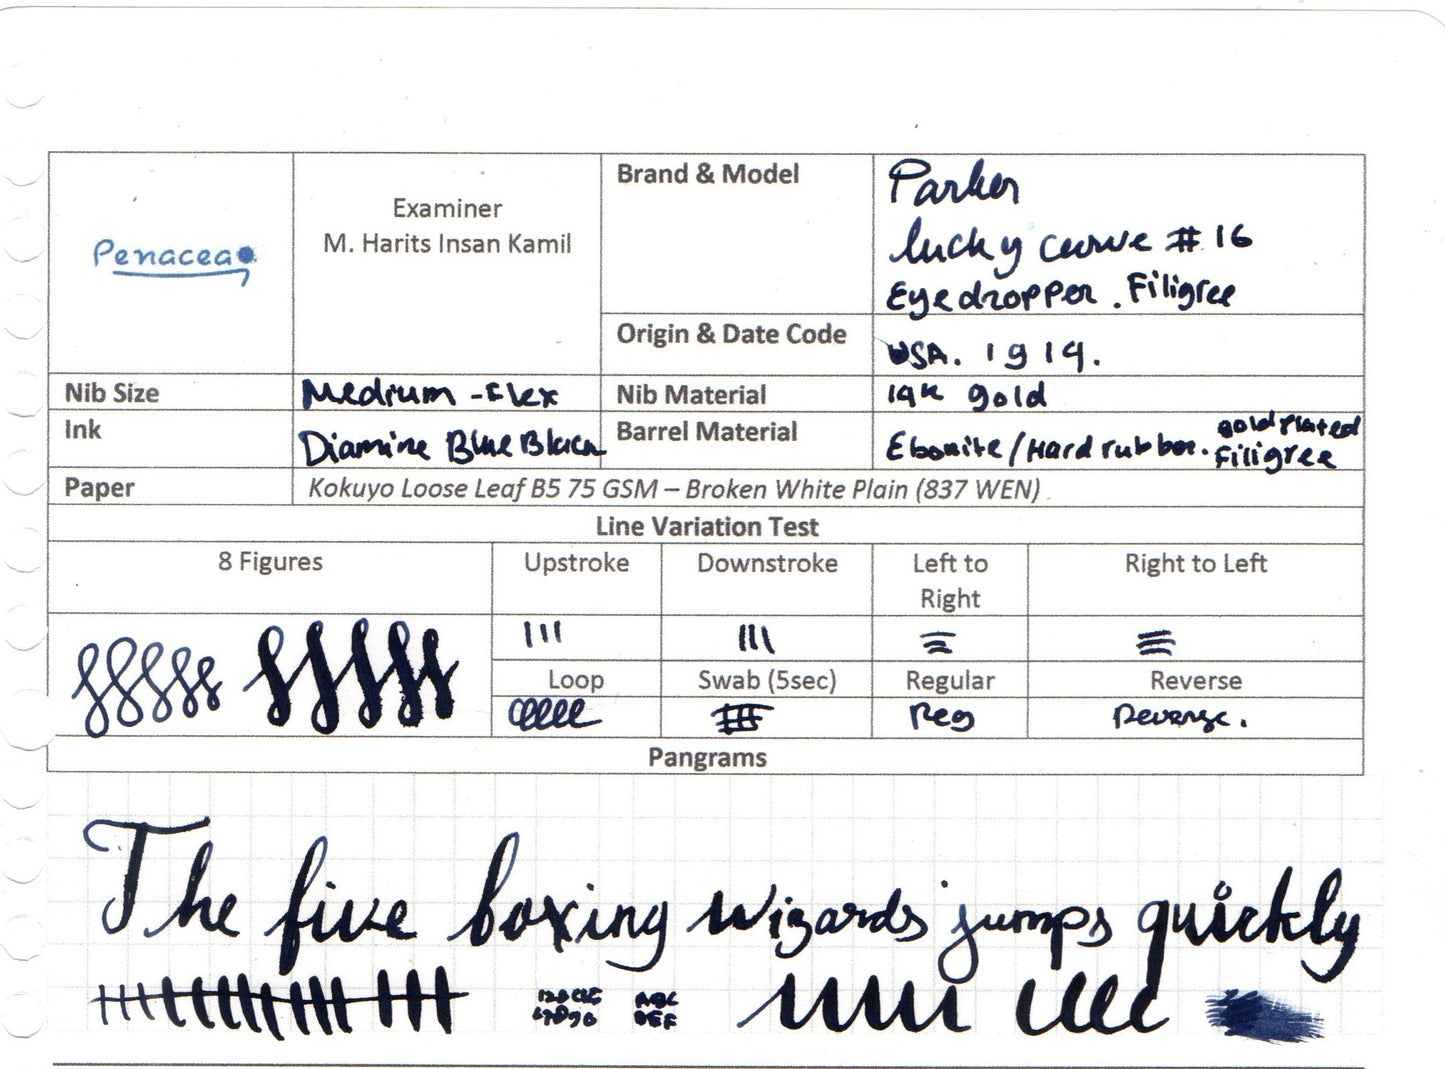 Penacea
Examiner
M. Harits Insan Kamil
Brand & Model
Parker
lucky curve # 16
Eyedropper. Filigree
Origin & Date Code
USA. 1919.
Nib Size
Medium - Flex
Nib Material
14k gold
Ink
Diamine Blue Black
Barrel Material
Ebonite/Hard rubber. gold plated
Filigree
Paper
Kokuyo Loose Leaf B5 75 GSM – Broken White Plain (837 WEN)
Line Variation Test
8 Figures
Upstroke
Downstroke
Left to
Right
Right to Left
Loop
Swab (5sec)
Regular
Reverse
Reg
Reverse.
Pangrams
The five boxing wizards jumps quickly
ABC
DEF